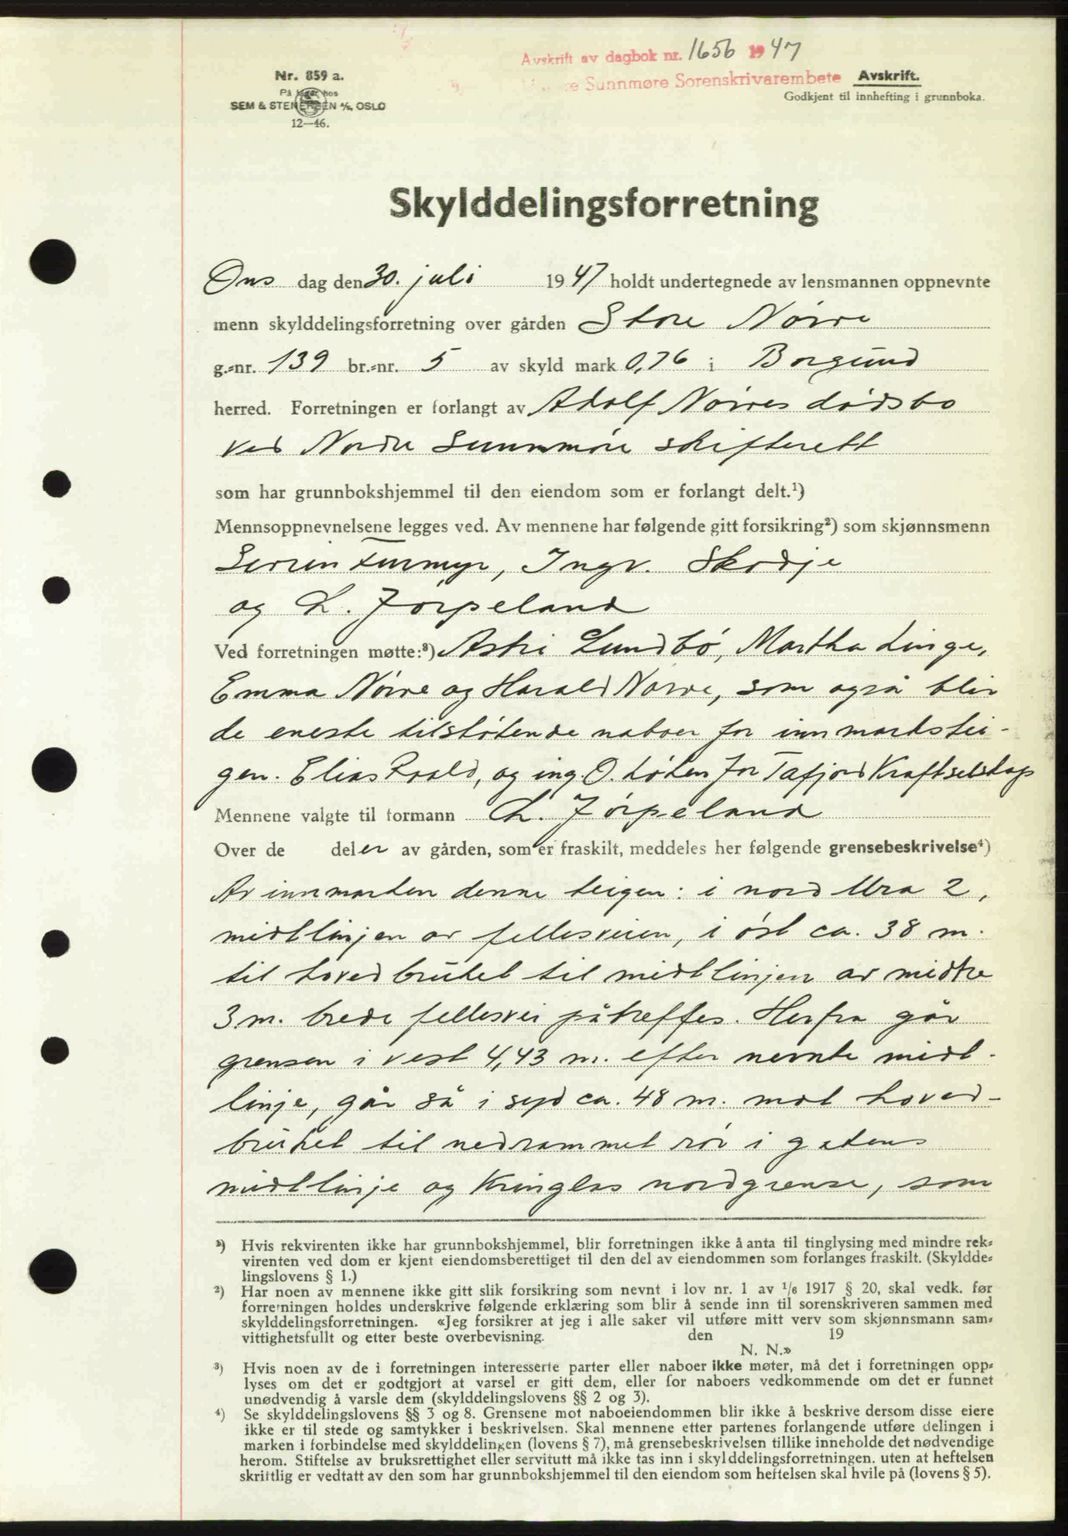 Avskrift av dagbok nr. 1656 1947
Sunnmøre Sorenskrivarembete
Nr. 859 a.
På lager hos
SEM & STENERSEN A/S, OSLO
12—46.
Avskrift.
Godkjent til innhefting i grunnboka.
Skylddelingsforretning
Ons dag den 30. juli 1947 holdt undertegnede av lensmannen oppnevnte
menn skylddelingsforretning over gården Store Nørve
g.-nr. 139 br.-nr. 5 av skyld mark 0,76 i Borgund
herred. Forretningen er forlangt av Adolf Nørves dødsbo
ved Nordre Sunnmøre skifterett
som har grunnbokshjemmel til den eiendom som er forlangt delt.¹)
Mennsoppnevnelsene legges ved. Av mennene har følgende gitt forsikring²) som skjønnsmenn
Furmyr, Ingv. Skodje
og L. Jørpeland
Ved forretningen møtte:³) Astri Lundbø, Martha Linge,
Emma Nørve og Harald Nørve, som også blir
de eneste tilstøtende naboer for innmarkstei-
gen. Elias Roald, og ing. O. Løken for Tafjord Kraftselskap
Mennene valgte til formann L. Jørpeland
Over de deler av gården, som er fraskilt, meddeles her følgende grensebeskrivelse⁴)
Av innmarken denne teigen: i nord Ura 2,
midtlinjen av fellesveien, i øst ca. 38 m.
til hovedbruket til midtlinjen av midtre
3 m. brede fellesvei påtreffes. Herfra går
grensen i vest 4,43 m. efter nevnte midt-
linje, går så i syd ca. 48 m. mot hoved-
bruket til nedrammet rør i gatens
midtlinje og Kringlas nordgrense, som
¹) Hvis rekvirenten ikke har grunnbokshjemmel, blir forretningen ikke å anta til tinglysing med mindre rek-
virenten ved dom er kjent eiendomsberettiget til den del av eiendommen som forlanges fraskilt. (Skyldde-
lingslovens § 1.)
²) Har noen av mennene ikke gitt slik forsikring som nevnt i lov nr. 1 av 1/6 1917 § 20, skal vedk. før
forretningen holdes underskrive følgende erklæring som blir å sende inn til sorenskriveren sammen med
skylddelingsforretningen. «Jeg forsikrer at jeg i alle saker vil utføre mitt verv som skjønnsmann sam-
vittighetsfullt og etter beste overbevisning. den 19
N. N.»
³) Hvis noen av de i forretningen interesserte parter eller naboer ikke møter, må det i forretningen opp-
lyses om det er godtgjort at varsel er gitt dem, eller for naboers vedkommende om det er funnet
unødvendig å varsle dem (skylddelingslovens §§ 2 og 3).
⁴) Se skylddelingslovens §§ 3 og 8. Grensene mot naboeiendommen blir ikke å beskrive dersom disse eiere
ikke er til stede og samtykker i beskrivelsen. Skal mennene etter partenes forlangende utføre delingen i
marken i forbindelse med skylddelingen (lovens § 7), må grensebeskrivelsen tillike inneholde det nødvendige
herom. Stiftelse av bruksrettighet eller servitutt må ikke tas inn i skylddelingsforretningen. uten at heftelsen
skriftlig er vedtatt av den som har grunnbokshjemmel til den eiendom som heftelsen skal hvile på (lovens § 5).